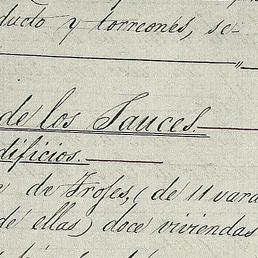 ducto y torreones, se-
de los Sauces.
dificios.
de Trofes, (de 11 vara
de ellas) doce viviendas